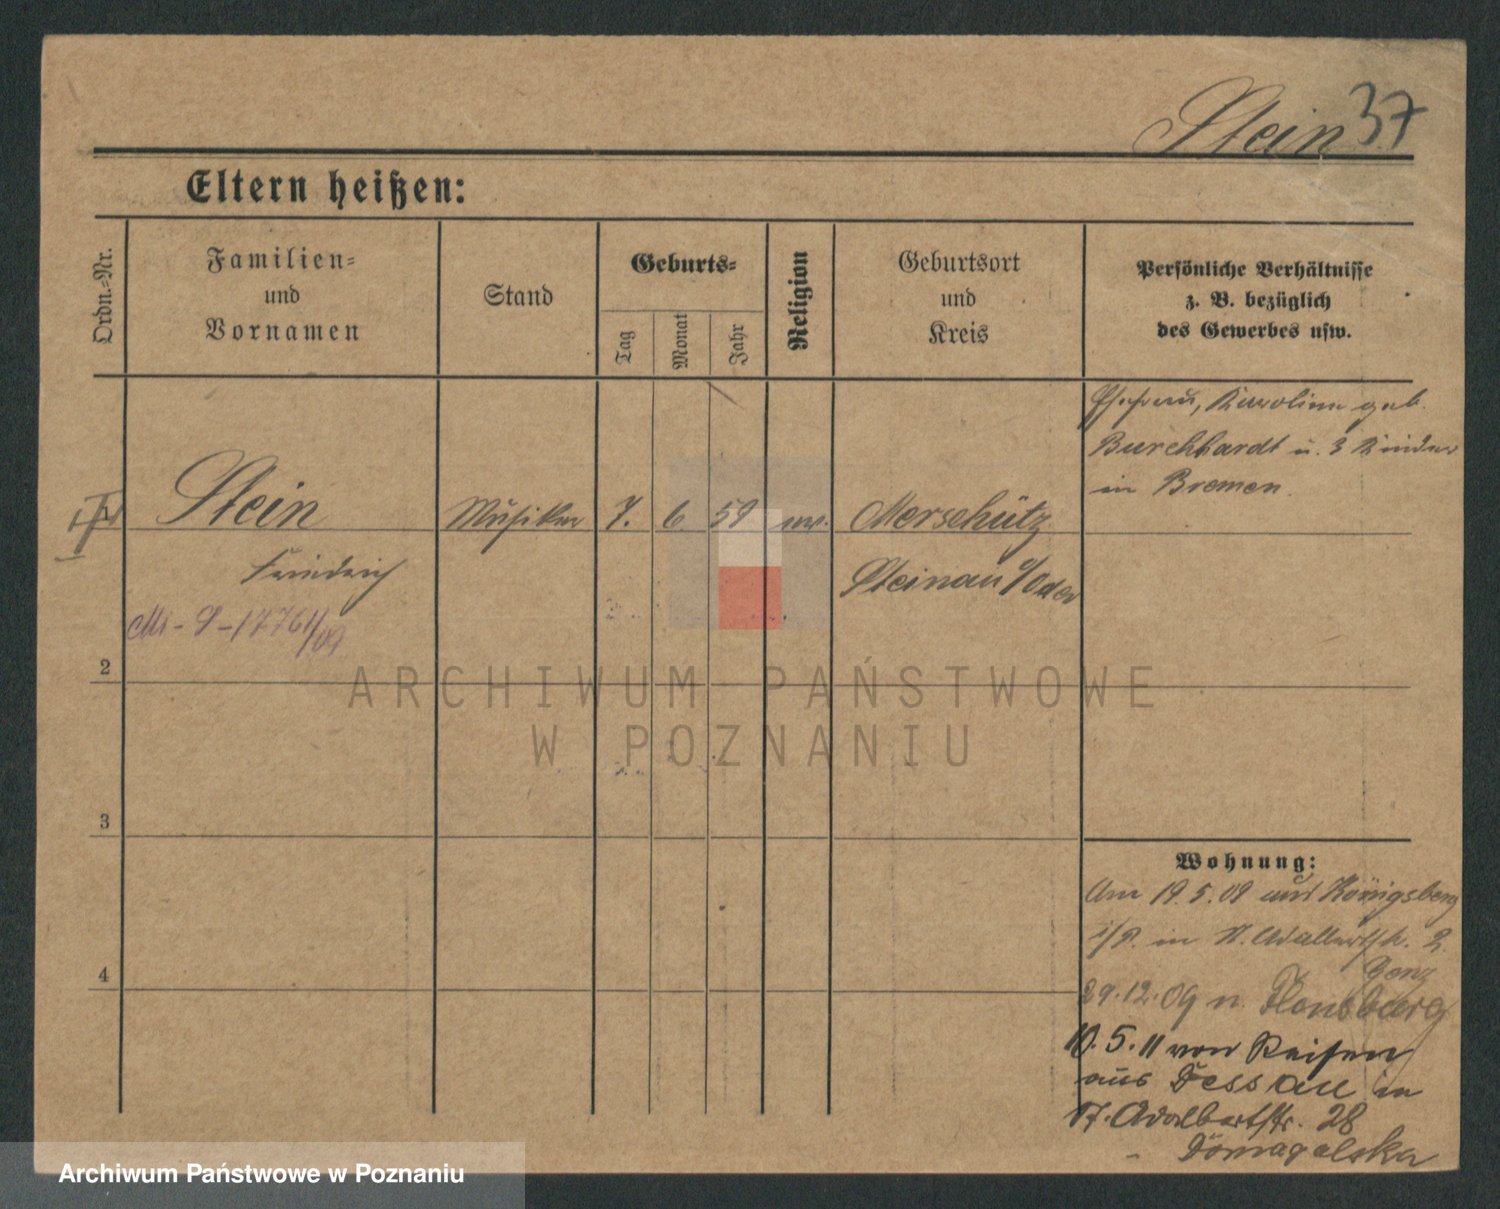 Stein 37
Eltern heißen:
Ordn.-Nr.
Familien-
und
Vornamen
Stand
Geburts-
Tag
Monat
Jahr
Religion
Geburtsort
und
Kreis
Persönliche Verhältnisse
z. B. bezüglich
des Gewerbes usw.
Ehefrau, Karoline geb.
Burchhardt u. 3 Kinder
in Bremen
Stein Musiker 7. 6 59 Merschütz
Friedrich Steinau a/Oder
2
ARCHIWUM PAŃSTWOWE
W POZNANIU
3
Wohnung:
Am 19.5.09 aus Königsberg
i/P. in Adalbertstr. 2
4
29.12.09 n. Flensburg
10.5.11 von Reisen
aus Dessau in
Adalbertstr. 28
Domagalska
Archiwum Państwowe w Poznaniu